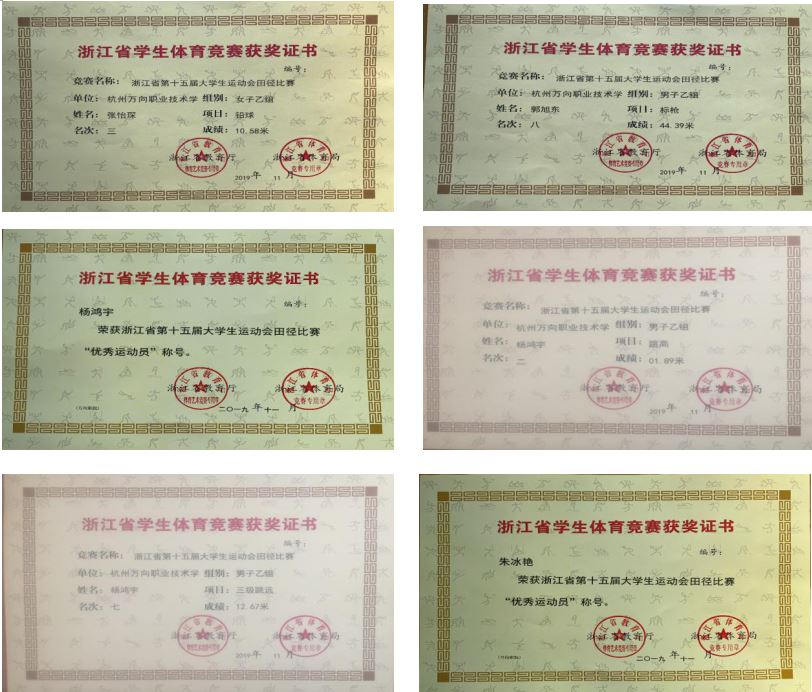 浙江省学生体育竞赛获奖证书
编号:
竞赛名称: 浙江省第十五届大学生运动会田径比赛
单位: 杭州万向职业技术学 组别: 女子乙组
姓名: 张怡琛 项目: 铅球
名次: 三 成绩: 10.58米
浙江省教育厅 浙江省体育局
体育艺术竞赛专用章 竞赛专用章
2019年 11月
浙江省学生体育竞赛获奖证书
编号:
竞赛名称: 浙江省第十五届大学生运动会田径比赛
单位: 杭州万向职业技术学 组别: 男子乙组
姓名: 郭旭东 项目: 标枪
名次: 八 成绩: 44.39米
浙江省教育厅 浙江省体育局
体育艺术竞赛专用章 竞赛专用章
2019年 11月
浙江省学生体育竞赛获奖证书
编号:
杨鸿宇
荣获浙江省第十五届大学生运动会田径比赛
“优秀运动员”称号。
浙江省教育厅 浙江省体育局
体育艺术竞赛专用章 竞赛专用章
二〇一九年十一月
浙江省学生体育竞赛获奖证书
编号:
竞赛名称: 浙江省第十五届大学生运动会田径比赛
单位: 杭州万向职业技术学 组别: 男子乙组
姓名: 杨鸿宇 项目: 跳高
名次: 二 成绩: 01.89米
浙江省教育厅 浙江省体育局
2019年 11月
浙江省学生体育竞赛获奖证书
编号:
竞赛名称: 浙江省第十五届大学生运动会田径比赛
单位: 杭州万向职业技术学 组别: 男子乙组
姓名: 杨鸿宇 项目: 三级跳远
名次: 七 成绩: 12.67米
浙江省教育厅 浙江省体育局
2019年 11月
浙江省学生体育竞赛获奖证书
编号:
朱冰艳
荣获浙江省第十五届大学生运动会田径比赛
“优秀运动员”称号。
浙江省教育厅 浙江省体育局
体育艺术竞赛专用章 竞赛专用章
二〇一九年十一月